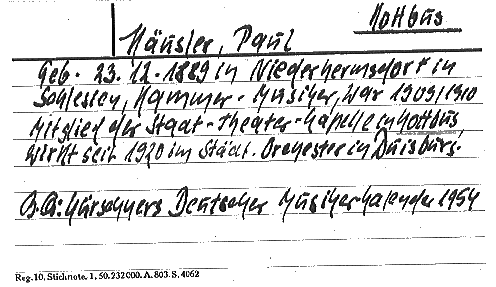 Kottbus
Häusler, Paul
Geb. 23.12.1889 in Niederhermsdorf in
Schlesien, Kammer-Musiker, war 1909/1910
Mitglied der Staat-Theater-Kapelle in Kottbus,
wirkt seit 1920 im Städt. Orchester in Duisburg.
B.A: Kürschners Deutscher Musiker-Kalender 1954
Reg. 10. Stichnote. 1, 50. 232000. A. 803. S. 4062